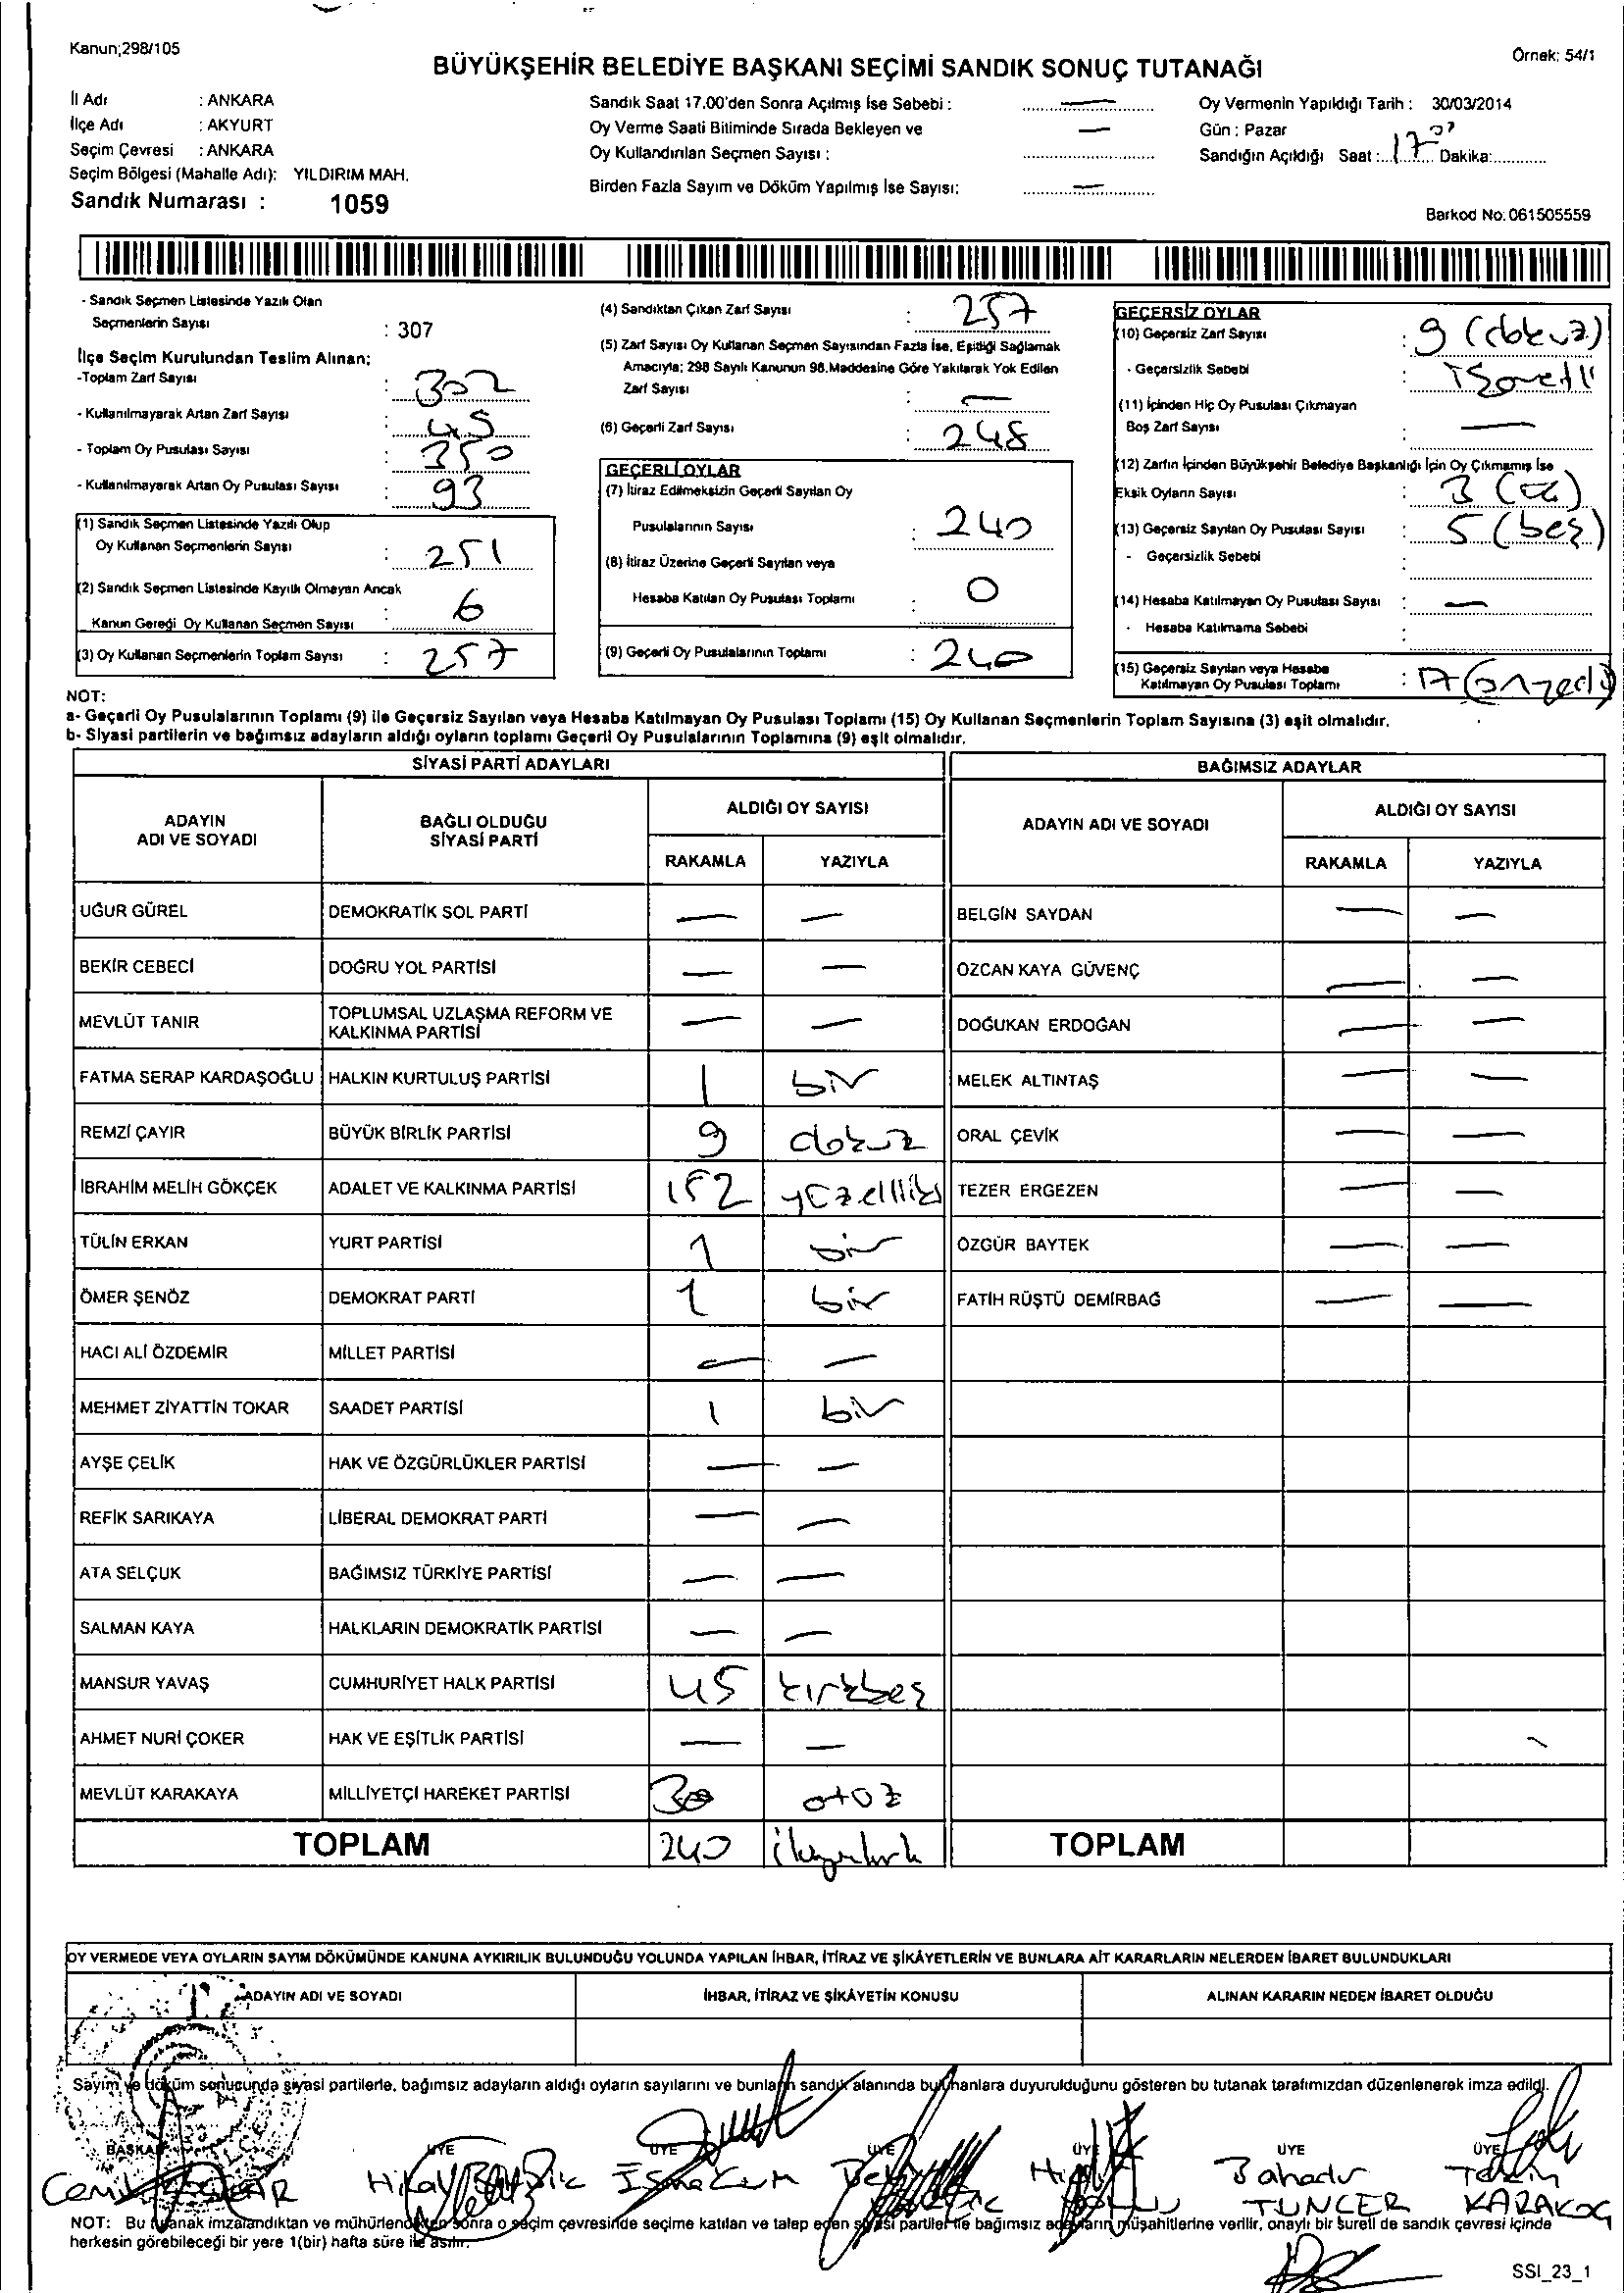 Kanun;298/105
Örnek: 54/1
BÜYÜKŞEHİR BELEDİYE BAŞKANI SEÇİMİ SANDIK SONUÇ TUTANAĞI
İl Adı : ANKARA
İlçe Adı : AKYURT
Seçim Çevresi : ANKARA
Seçim Bölgesi (Mahalle Adı): YILDIRIM MAH.
Sandık Numarası : 1059
Sandık Saat 17.00'den Sonra Açılmış İse Sebebi : —
Oy Verme Saati Bitiminde Sırada Bekleyen ve —
Oy Kullandırılan Seçmen Sayısı :
Birden Fazla Sayım ve Döküm Yapılmış İse Sayısı: —
Oy Vermenin Yapıldığı Tarih : 30/03/2014
Gün : Pazar
Sandığın Açıldığı Saat : 17 Dakika:
Barkod No: 061505559
- Sandık Seçmen Listesinde Yazılı Olan
Seçmenlerin Sayısı : 307
İlçe Seçim Kurulundan Teslim Alınan:
-Toplam Zarf Sayısı : 302
- Kullanılmayarak Artan Zarf Sayısı : 45
- Toplam Oy Pusulası Sayısı : 350
- Kullanılmayarak Artan Oy Pusulası Sayısı : 93
(1) Sandık Seçmen Listesinde Yazılı Olup
Oy Kullanan Seçmenlerin Sayısı : 251
(2) Sandık Seçmen Listesinde Kayıtlı Olmayan Ancak
Kanun Gereği Oy Kullanan Seçmen Sayısı : 6
(3) Oy Kullanan Seçmenlerin Toplam Sayısı : 257
(4) Sandıktan Çıkan Zarf Sayısı : 257
(5) Zarf Sayısı Oy Kullanan Seçmen Sayısından Fazla İse, Eşitliği Sağlamak
Amacıyla; 298 Sayılı Kanunun 98.Maddesine Göre Yakılarak Yok Edilen
Zarf Sayısı : —
(6) Geçerli Zarf Sayısı : 248
GEÇERLİ OYLAR
(7) İtiraz Edilmeksizin Geçerli Sayılan Oy
Pusulalarının Sayısı : 240
(8) İtiraz Üzerine Geçerli Sayılan veya
Hesaba Katılan Oy Pusulası Toplamı : 0
(9) Geçerli Oy Pusulalarının Toplamı : 240
GEÇERSİZ OYLAR
(10) Geçersiz Zarf Sayısı : 9 (dokuz)
- Geçersizlik Sebebi : işaretli
(11) İçinden Hiç Oy Pusulası Çıkmayan
Boş Zarf Sayısı : —
(12) Zarfın İçinden Büyükşehir Belediye Başkanlığı İçin Oy Çıkmamış İse
Eksik Oyların Sayısı : 3 (üç)
(13) Geçersiz Sayılan Oy Pusulası Sayısı : 5 (beş)
- Geçersizlik Sebebi :
(14) Hesaba Katılmayan Oy Pusulası Sayısı : —
- Hesaba Katılmama Sebebi :
(15) Geçersiz Sayılan veya Hesaba
Katılmayan Oy Pusulası Toplamı : 17 (onyedi)
NOT:
a- Geçerli Oy Pusulalarının Toplamı (9) ile Geçersiz Sayılan veya Hesaba Katılmayan Oy Pusulası Toplamı (15) Oy Kullanan Seçmenlerin Toplam Sayısına (3) eşit olmalıdır.
b- Siyasi partilerin ve bağımsız adayların aldığı oyların toplamı Geçerli Oy Pusulalarının Toplamına (9) eşit olmalıdır.
SİYASİ PARTİ ADAYLARI
ADAYIN ADI VE SOYADI BAĞLI OLDUĞU SİYASİ PARTİ ALDIĞI OY SAYISI
RAKAMLA YAZIYLA
UĞUR GÜREL DEMOKRATİK SOL PARTİ — —
BEKİR CEBECİ DOĞRU YOL PARTİSİ — —
MEVLÜT TANIR TOPLUMSAL UZLAŞMA REFORM VE KALKINMA PARTİSİ — —
FATMA SERAP KARDAŞOĞLU HALKIN KURTULUŞ PARTİSİ 1 bir
REMZİ ÇAYIR BÜYÜK BİRLİK PARTİSİ 9 dokuz
İBRAHİM MELİH GÖKÇEK ADALET VE KALKINMA PARTİSİ 152 yüzelliiki
TÜLİN ERKAN YURT PARTİSİ 1 bir
ÖMER ŞENÖZ DEMOKRAT PARTİ 1 bir
HACI ALİ ÖZDEMİR MİLLET PARTİSİ — —
MEHMET ZİYATTİN TOKAR SAADET PARTİSİ 1 bir
AYŞE ÇELİK HAK VE ÖZGÜRLÜKLER PARTİSİ — —
REFİK SARIKAYA LİBERAL DEMOKRAT PARTİ — —
ATA SELÇUK BAĞIMSIZ TÜRKİYE PARTİSİ — —
SALMAN KAYA HALKLARIN DEMOKRATİK PARTİSİ — —
MANSUR YAVAŞ CUMHURİYET HALK PARTİSİ 45 kırkbeş
AHMET NURİ ÇOKER HAK VE EŞİTLİK PARTİSİ — —
MEVLÜT KARAKAYA MİLLİYETÇİ HAREKET PARTİSİ 30 otuz
TOPLAM 240 ikiyüzkırk
BAĞIMSIZ ADAYLAR
ADAYIN ADI VE SOYADI ALDIĞI OY SAYISI
RAKAMLA YAZIYLA
BELGİN SAYDAN — —
ÖZCAN KAYA GÜVENÇ — —
DOĞUKAN ERDOĞAN — —
MELEK ALTINTAŞ — —
ORAL ÇEVİK — —
TEZER ERGEZEN — —
ÖZGÜR BAYTEK — —
FATİH RÜŞTÜ DEMİRBAĞ — —
TOPLAM
OY VERMEDE VEYA OYLARIN SAYIM DÖKÜMÜNDE KANUNA AYKIRILIK BULUNDUĞU YOLUNDA YAPILAN İHBAR, İTİRAZ VE ŞİKÂYETLERİN VE BUNLARA AİT KARARLARIN NELERDEN İBARET BULUNDUKLARI
ADAYIN ADI VE SOYADI İHBAR, İTİRAZ VE ŞİKÂYETİN KONUSU ALINAN KARARIN NEDEN İBARET OLDUĞU
Sayım ve döküm sonucunda siyasi partilerle, bağımsız adayların aldığı oyların sayılarını ve bunların sandık alanında bulunanlara duyurulduğunu gösteren bu tutanak tarafımızdan düzenlenerek imza edildi.
BAŞKAN ÜYE ÜYE ÜYE ÜYE ÜYE ÜYE
Bahadır
TUNCER
KARAKOÇ
NOT: Bu tutanak imzalandıktan ve mühürlendikten sonra o seçim çevresinde seçime katılan ve talep eden siyasi partiler ile bağımsız adayların müşahitlerine verilir, onaylı bir sureti de sandık çevresi içinde
herkesin görebileceği bir yere 1(bir) hafta süre ile asılır.
SSI_23_1